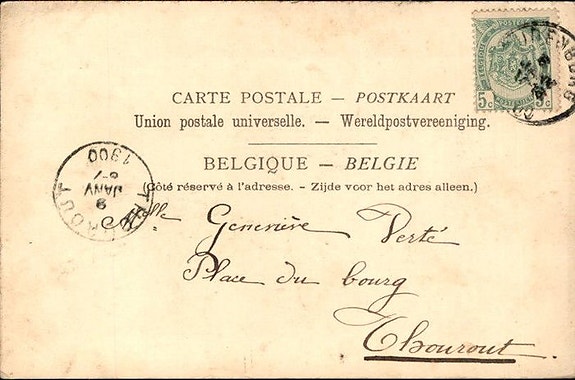 BELGIQUE POSTES BELGIE
5c 5c
CARTE POSTALE — POSTKAART
Union postale universelle. — Wereldpostvereeniging.
BELGIQUE — BELGIE
(Côté réservé à l'adresse. - Zijde voor het adres alleen.)
THOUROUT
9
JANV
8-7
1900
Mlle Geneviève Verté
Place du bourg
Thourout